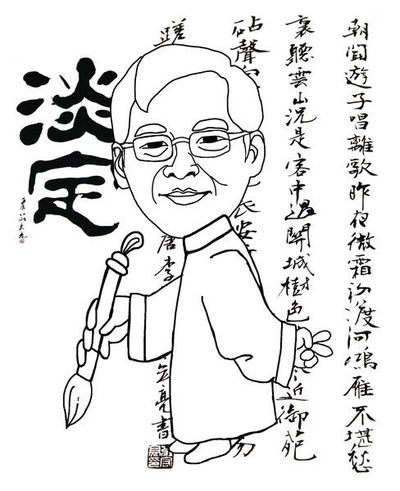 朝聞遊子唱離歌昨夜微霜初渡河鴻雁不堪愁
裏聽雲山況是客中過關城樹色 近御苑
砧聲 長安
蹉 唐李 亮書
淡定